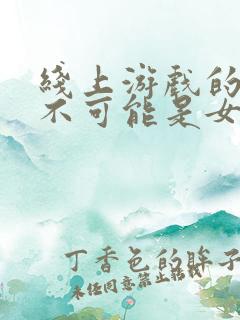 线上游戏的
不可能是女
丁香色的眸子
未经同意禁止转载